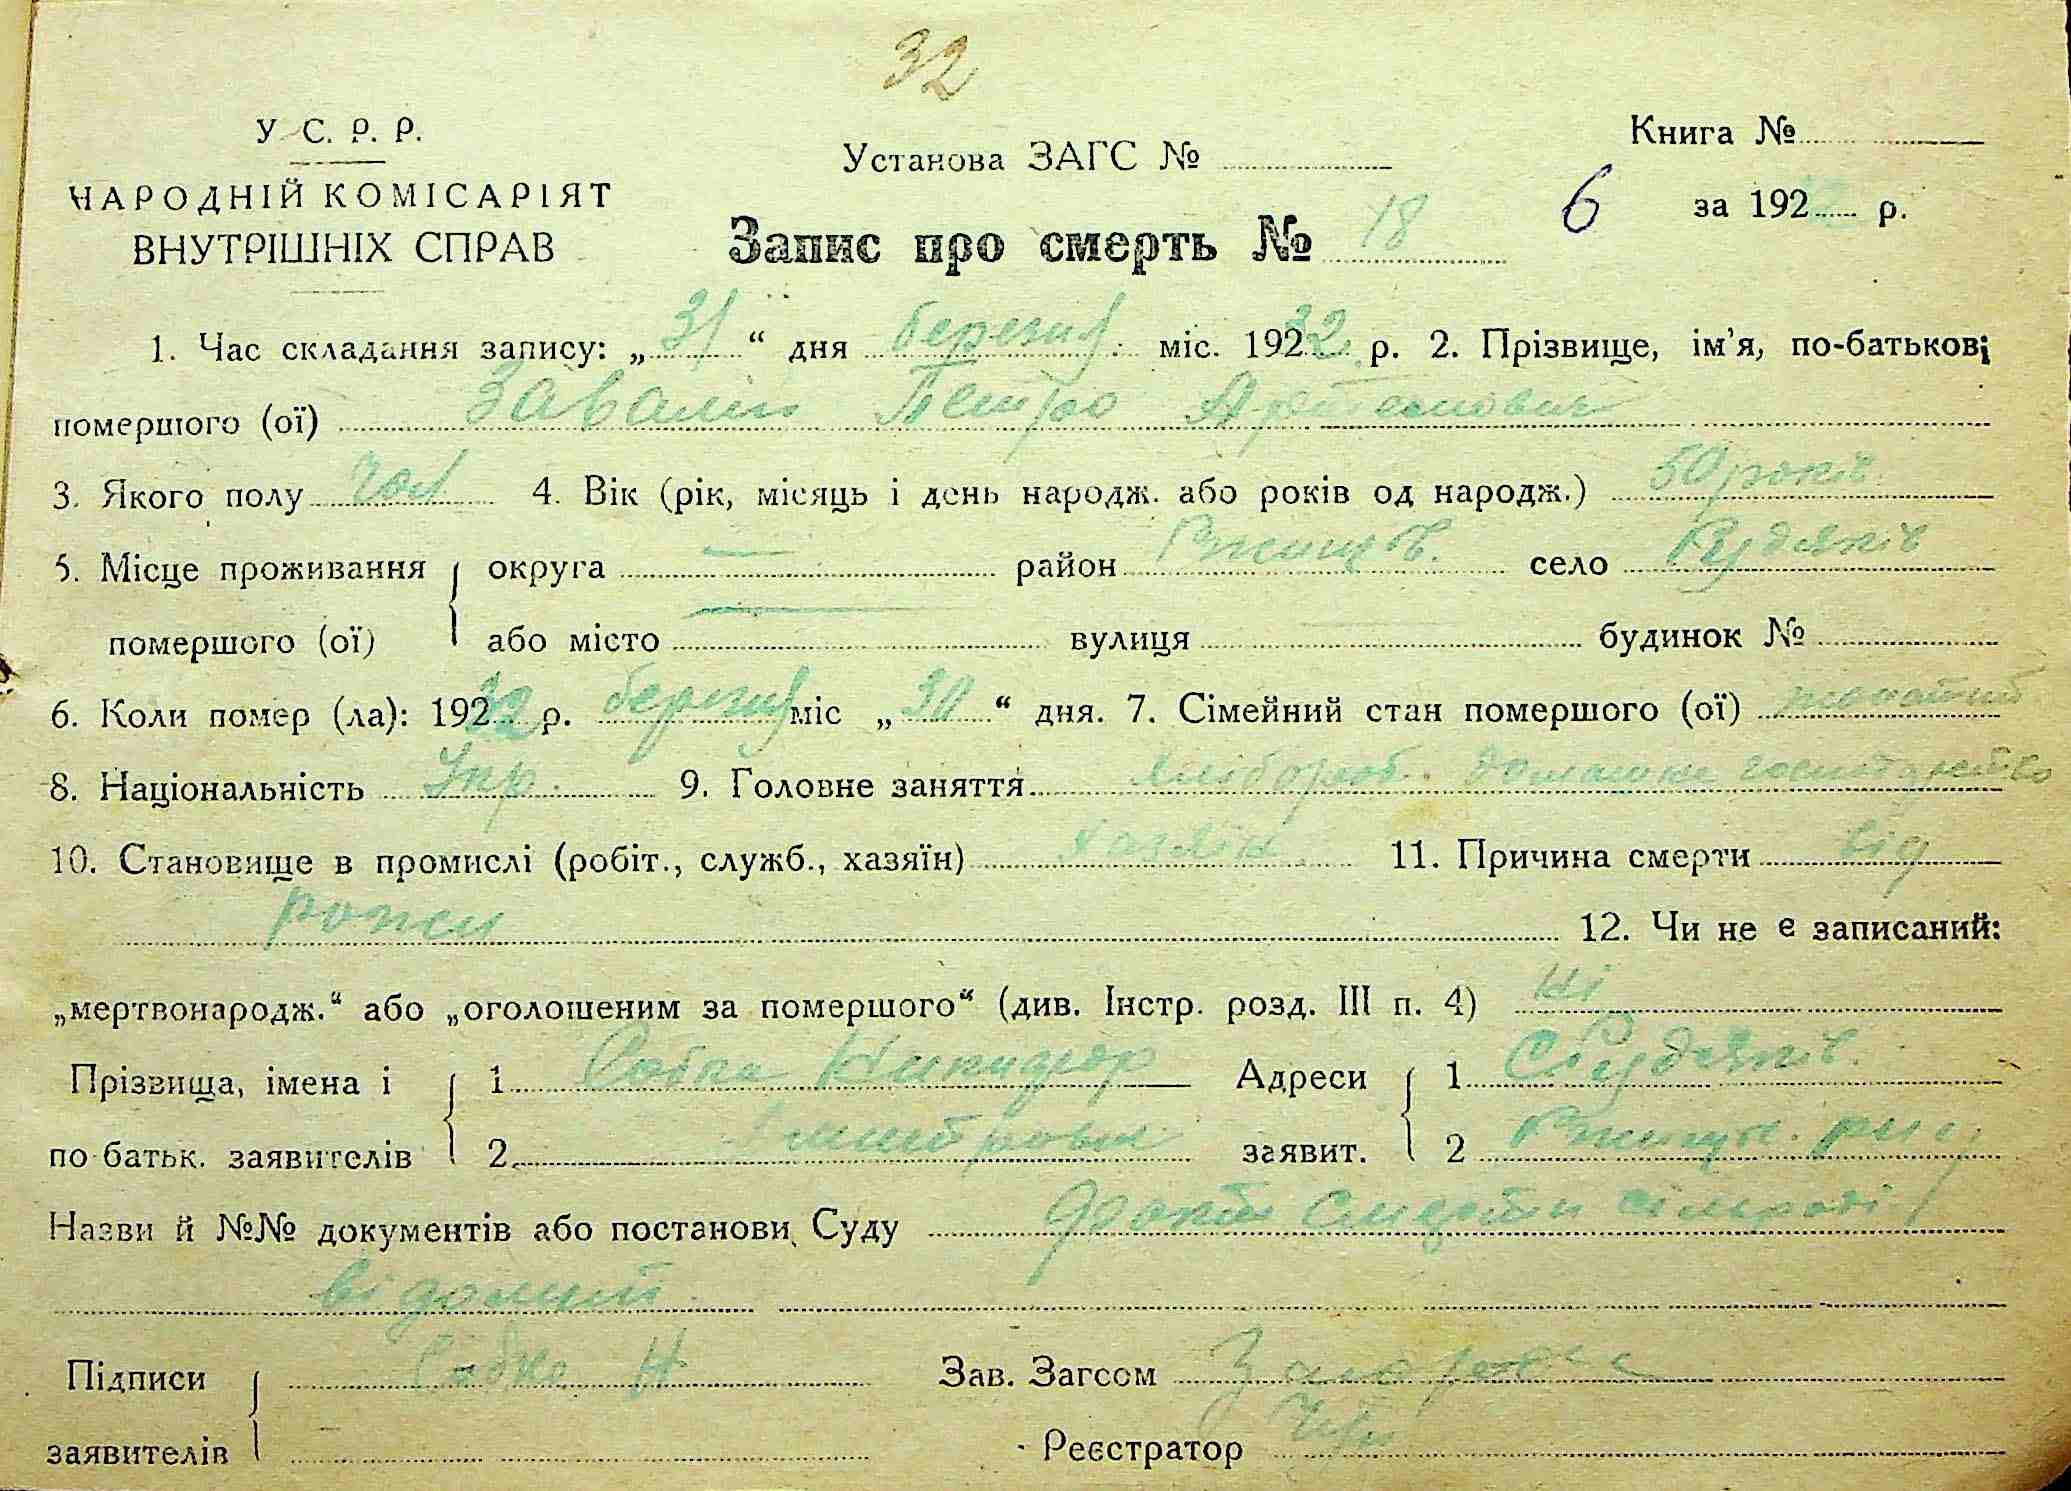 32
У С. Р. Р.
НАРОДНІЙ КОМІСАРІЯТ
ВНУТРІШНІХ СПРАВ
Установа ЗАГС №
Книга №
6 за 192 р.
Запис про смерть № 18
1. Час складання запису: „31“ дня березня міс. 1932 р. 2. Прізвище, ім’я, по-батькові
помершого (ої) Завалій Петро Артемович
3. Якого полу чол 4. Вік (рік, місяць і день народж. або років од народж.) 50 років
5. Місце проживання помершого (ої) округа — район Ржищів. село Рудяків
або місто — вулиця будинок №
6. Коли помер (ла): 1932 р. березня міс „30“ дня. 7. Сімейний стан помершого (ої) жонатий
8. Національність Укр. 9. Головне заняття хлібороб. домашнє
10. Становище в промислі (робіт., служб., хазяїн) хазяїн 11. Причина смерти від
рожи 12. Чи не є записаний:
„мертвонародж.“ або „оголошеним за помершого“ (див. Інстр. розд. III п. 4) ні
Прізвища, імена і по батьк. заявителів 1 Собко Никифор Адреси заявит. 1 С Рудяків.
2 Дмитрович 2 Ржищів.
Назви й №№ документів або постанови Суду факт смерти сільраді
відомий
Підписи заявителів Собко Н Зав. Загсом
Реєстратор